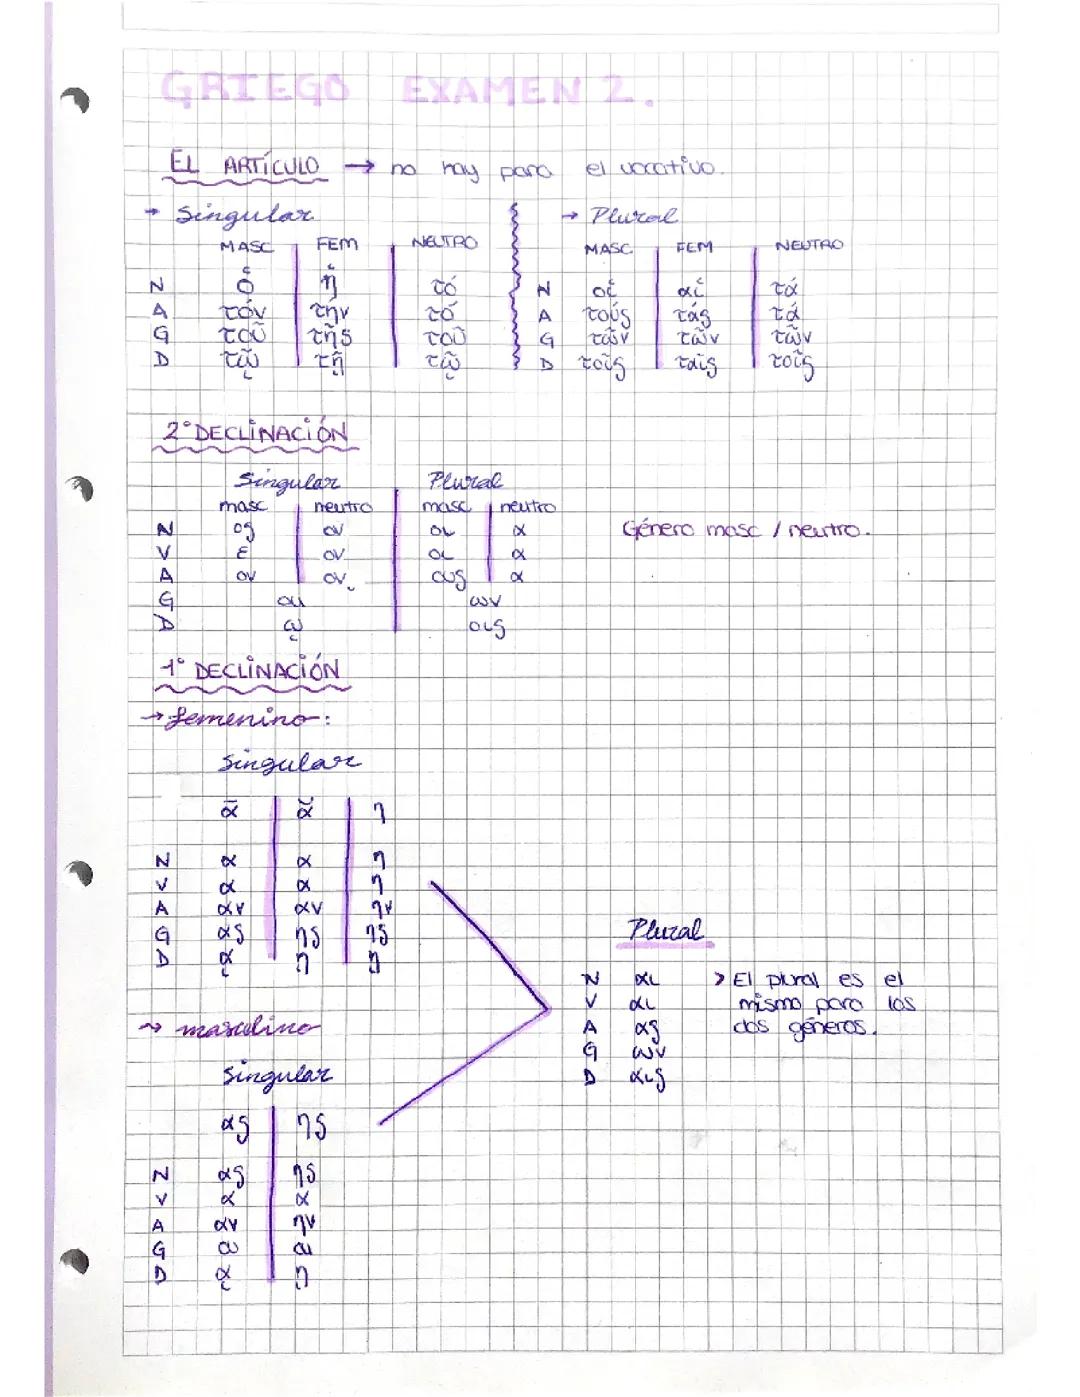 GRIEGO EXAMEN 2.
EL ARTÍCULO → no hay para el vocativo.
→ Singular
MASC FEM NEUTRO
N ὁ ἡ τό
A τόν τήν τό
G τοῦ τῆς τοῦ
D τῷ τῇ τῷ
→ Plural
MASC FEM NEUTRO
N οἱ αἱ τά
A τούς τάς τά
G τῶν τῶν τῶν
D τοῖς ταῖς τοῖς
2º DECLINACIÓN
Singular Plural
masc neutro masc neutro
N ος ον οι α
V ε ον οι α
A ον ον ους α
G ου ων
D ῳ οις
Género masc / neutro.
1º DECLINACIÓN
→ femenino:
Singular
ᾱ ᾰ η
N α α η
V α α η
A αν αν ην
G ας ης ης
D ᾳ ῃ ῃ
→ masculino
Singular
ας ης
N ας ης
V α α
A αν ην
G ου ου
D ᾳ ῃ
Plural
N αι > El plural es el
V αι mismo para los
A ας dos géneros.
G ων
D αις